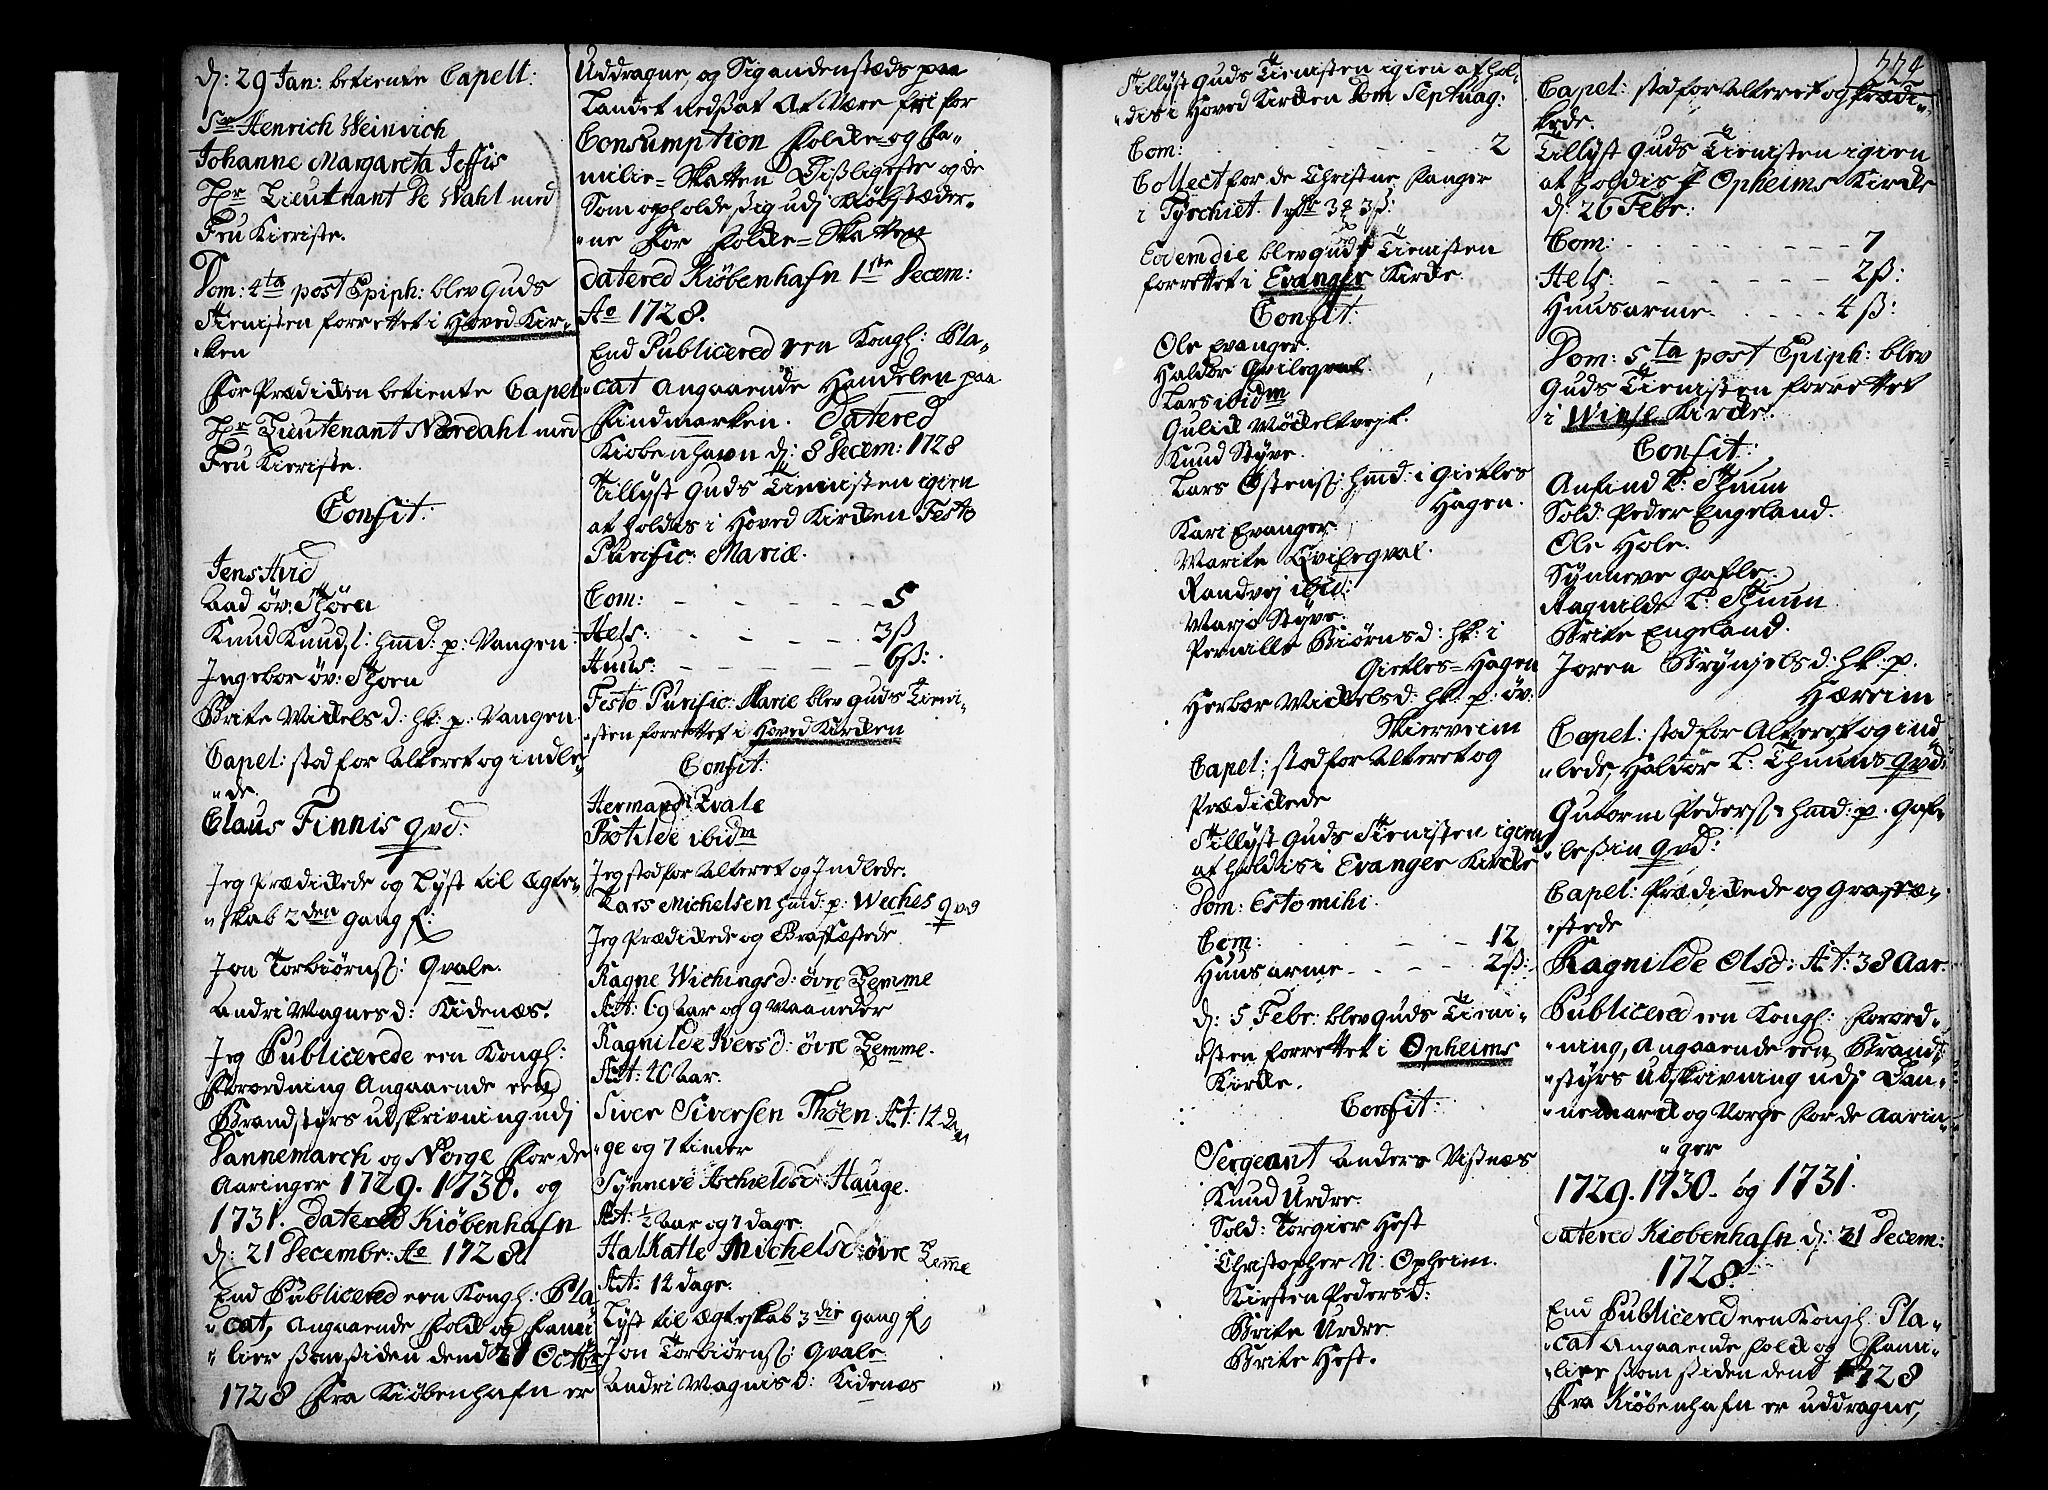 d: 29 Jan: betiente Capell:
Sr Henrich Weinvich
Johanne Margareta Jeffis
Hr Lieutnant De Wahl med
Fru Kieriste.
Dom: 4ta post Epiph: blev Guds
Tienisten forrettet i Hoved Kir-
"ken
For Prædiken betiente Capel:
Hr Lieutenant Nordahl med
Fru Kieriste.
Confit:
Jens Hvid
Aad öv: Thöen
Knud Knuds: hmd: p: Vangen
Ingebor öv: Thoen
Brite Wickels d: hk: p: Vangen
Capel: stod for Alteret og indle-
"de.
Claus Finnis qvd:
Jeg Prædickede og Lyst til Ægte-
"skab 2den gang f:
Jon Torbiörns: Qvale.
Andri Magnesd: Kidenæs.
Jeg Publicerede een Kongl:
Forordning Angaaende een
Brandstyrs udskrivning udj
Dannemarch og Norge for de
Aaringer 1729. 1730. og
1731. datered Kiöbenhafn
d: 21 Decembr: Ao 1728.
End Publicered een Kongl: Pla-
"cat, Angaaende Folck og Fami-
"lier som siden dend 21 Octbr
1728 fra Kiöbenhafn er
Uddragne, og Sig andenstæds paa
Landet nedsat At Være fri for
Consumption Folcke- og Fa-
milie-Skatten Disligeste og de
Som opholde sig udj Kiöbstæder-
"ne For Folcke-Skatten
datered Kiöbenhafn 1ste Decem:
Ao 1728.
End Publicered een Kongl: Pla-
"cat Angaaende Handelen paa
Findmarken. Datered
Kiobenhavn d: 8 Decem: 1728
Tillyst Guds Tienisten igien
at holdes i Hoved Kircken Festo
Purific: Mariæ.
Com: - - - - - - 5
Hels: - - - - - 3ß
Huus: - - - - - - 6ß:
Festo Purific: Marie blev Guds Tieni-
"sten forrettet i Hoved Kircken
Confit:
Hermand Qvale
Botilde ibidm
Jeg stod for Alteret og Indlede.
Lars Michelsen hmd: p: Weches qvd
Jeg Prædickede og Graffæstede
Ragne Wichingsd: övre Lemme
Æt: 69 Aar og 9 Maaneder
Ragnilde Iversd: övre Lemme.
Æt: 40 Aar.
Siver Siversen Thöen. Æt: 14 Da-
"ge og 7 timer
Synneve Hauge.
Æt: ½ Aar og 7 dage.
HalKatle Michelsd: övre Lemme
Æt: 14 dage.
Lyst til Ægteskab 3die gang f
Jon Torbiörns: Qvale
Andri Magnisd: Kidenæs
Tillyst Guds Tienisten igien at hol-
"dis i Hoved Kircken Dom Septuag:
Com: - - - - 2
Collect for de Christne Fanger
i Tyrchiet. 1 rdr 3 3ß:
Eodem die blev Guds Tienisten
forrettet i Evanger Kircke.
Confit:
Ole Evanger.
Haldor Qvilegval
Lars ibidm
Gulick
Knud Styve.
Lars Östens: hmd: i Gietles
Hagen.
Kari Evanger.
Marite Qvilegval.
Randvej ibid:
Marjo Styve.
Pernille Biörnsd: hk: i
Gietles-Hagen
Herbor Wickelsd: hk: p: öv:
Skierveim
Capel: stod for Alteret og
Prædickede
Tillyst Guds Tienisten igien
at holdis i Evanger Kircke
Dom: Estomihi.
Com: - - - 12
Huusarme - - - - 2ß:
d: 5 Febr: blev Guds Tieni-
"sten forrettet i Opheims
Kircke.
Confit:
Sergeant Anders Visnæs
Knud Urdre.
Sold: Torgier Hest
Christopher N: Opheim.
Kirsten Pedersd:
Brite Urdre.
Brite Hest.
Capel: stod for Alteret og Prædi-
kede.
Tillyst Guds Tienisten igien
at holdis i Opheims Kircke
d: 26 Febr:
Com: - - - - - - 7
Hels: - - - - - 2ß:
Huusarme - - - - 4ß:
Dom: 5ta post Epiph: blev
Guds Tienisten forrettet
i Winje Kircke.
Confit:
Anfind L: Thuun
Sold: Peder Engeland.
Ole Hole.
Synneve Gafle.
Ragnilde L: Thuun
Brite Engeland.
Joren Brynjelsd: hk: p.
Hæreim
Capel: stod for Alteret og ind
"lede, Haldor L: Thuuns qvd:
Gutorm Peders: hmd: p: Gaf-
"lesin qvd:
Capel: Prædickede og Graffæ-
"stede
Ragnilde Olsd: Æt: 38 Aar.
Publicered een Kongl: Forord-
"ning, Angaaende een Brand-
"styrs udskrivning udj Dan-
"nemarck og Norge for de Aarin-
"ger
1729. 1730. og 1731.
datered Kiobenhafn d: 21 Decem:
1728.
End Publicered een Kongl. Pla-
"cat Angaaende Folck og Fami-
"lier som siden dend 1728
Fra Kiöbenhafn er uddragne,